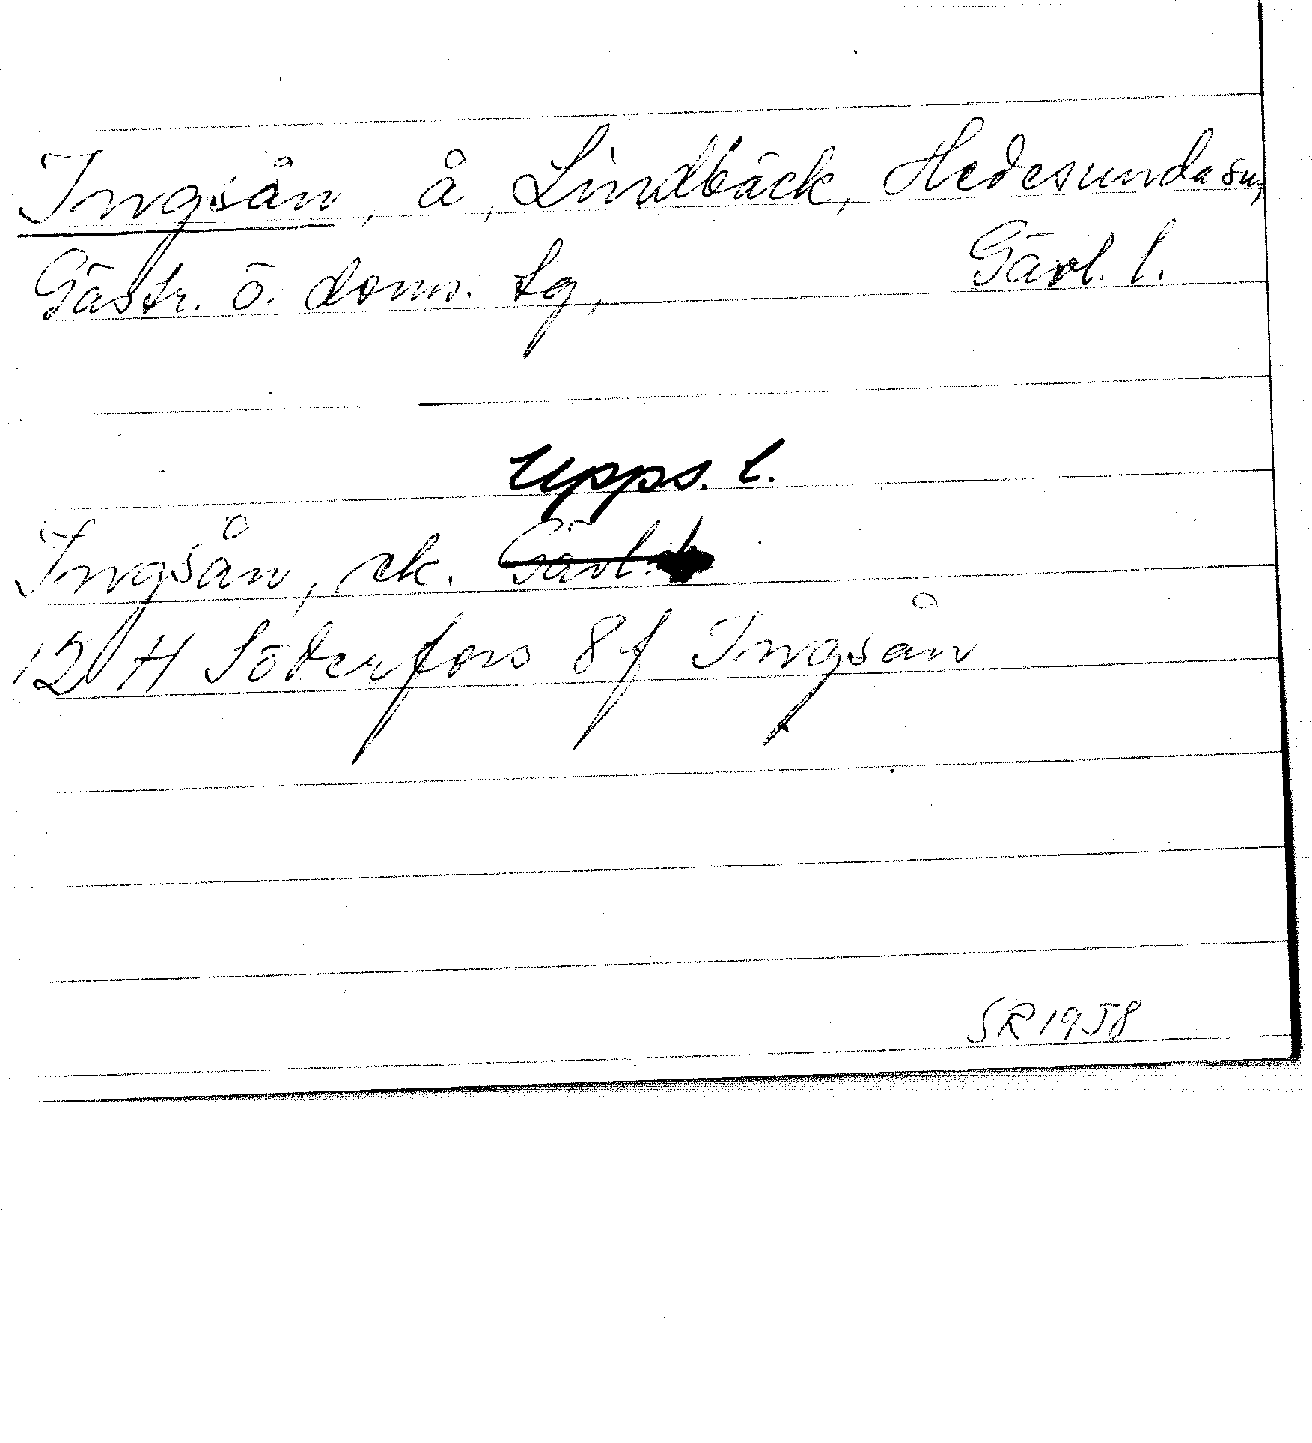 Ingsån, å, Lindbäck, Hedesunda sn,
Gästr. ö. doms. tg, Gävl. l.
Upps. l.
Ingsån, ek. Gävl. l.
12 H Söderfors 8f Ingsån
SR 1958